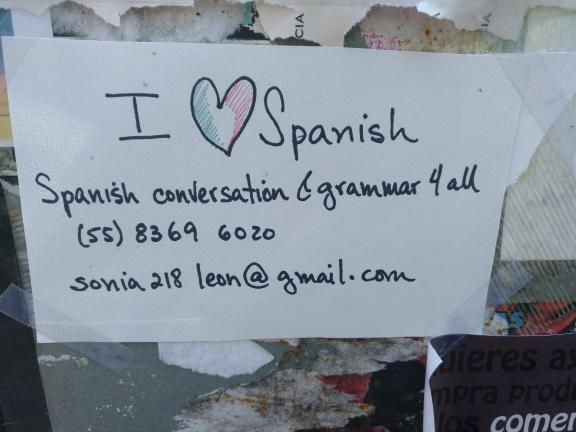 CIA
I ♥ Spanish
Spanish conversation & grammar 4 all
(55) 8369 6020
sonia218leon@gmail.com
uieres as
mpra produ
los comer